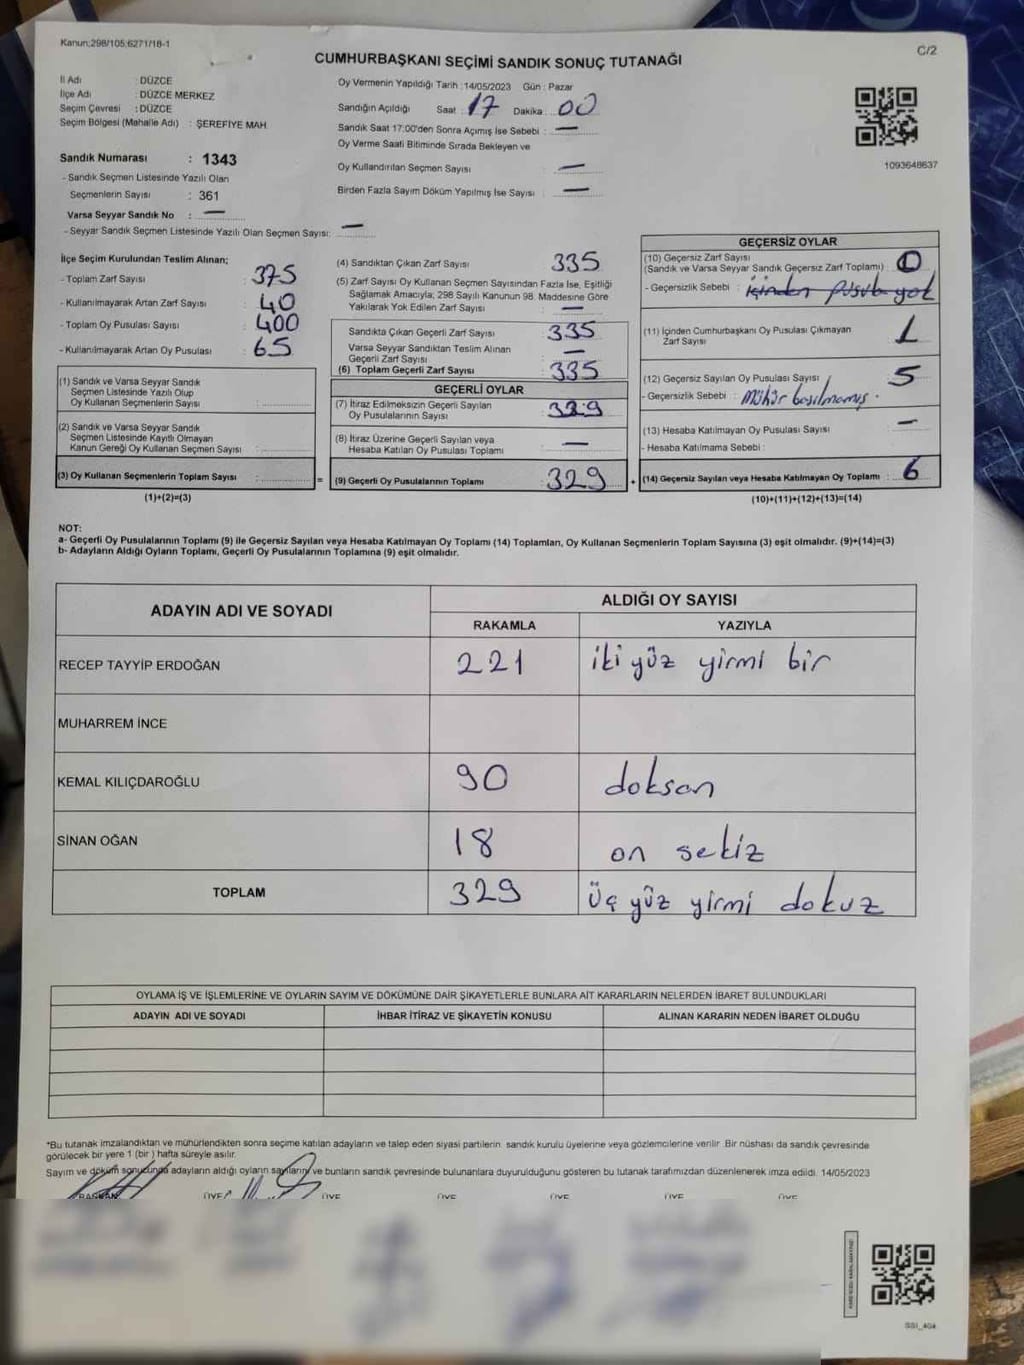 Kanun:298/105,6271/18-1
C/2
CUMHURBAŞKANI SEÇİMİ SANDIK SONUÇ TUTANAĞI
İl Adı : DÜZCE
İlçe Adı : DÜZCE MERKEZ
Seçim Çevresi : DÜZCE
Seçim Bölgesi (Mahalle Adı) : ŞEREFİYE MAH.
Sandık Numarası : 1343
- Sandık Seçmen Listesinde Yazılı Olan
Seçmenlerin Sayısı : 361
Varsa Seyyar Sandık No : —
- Seyyar Sandık Seçmen Listesinde Yazılı Olan Seçmen Sayısı: —
Oy Vermenin Yapıldığı Tarih :14/05/2023 Gün : Pazar
Sandığın Açıldığı Saat : 17 Dakika : 00
Sandık Saat 17:00'den Sonra Açımış İse Sebebi : —
Oy Verme Saati Bitiminde Sırada Bekleyen ve
Oy Kullandırılan Seçmen Sayısı : —
Birden Fazla Sayım Döküm Yapılmış İse Sayısı : —
1093648637
İlçe Seçim Kurulundan Teslim Alınan;
- Toplam Zarf Sayısı : 375
- Kullanılmayarak Artan Zarf Sayısı : 40
- Toplam Oy Pusulası Sayısı : 400
- Kullanılmayarak Artan Oy Pusulası : 65
(1) Sandık ve Varsa Seyyar Sandık
Seçmen Listesinde Yazılı Olup
Oy Kullanan Seçmenlerin Sayısı :
(2) Sandık ve Varsa Seyyar Sandık
Seçmen Listesinde Kayıtlı Olmayan
Kanun Gereği Oy Kullanan Seçmen Sayısı :
(3) Oy Kullanan Seçmenlerin Toplam Sayısı :
(1)+(2)=(3)
(4) Sandıktan Çıkan Zarf Sayısı : 335
(5) Zarf Sayısı Oy Kullanan Seçmen Sayısından Fazla İse, Eşitliği
Sağlamak Amacıyla; 298 Sayılı Kanunun 98. Maddesine Göre
Yakılarak Yok Edilen Zarf Sayısı : —
Sandıkta Çıkan Geçerli Zarf Sayısı : 335
Varsa Seyyar Sandıktan Teslim Alınan
Geçerli Zarf Sayısı : —
(6) Toplam Geçerli Zarf Sayısı : 335
GEÇERLİ OYLAR
(7) İtiraz Edilmeksizin Geçerli Sayılan
Oy Pusulalarının Sayısı : 329
(8) İtiraz Üzerine Geçerli Sayılan veya
Hesaba Katılan Oy Pusulası Toplamı : —
= (9) Geçerli Oy Pusulalarının Toplamı : 329
GEÇERSİZ OYLAR
(10) Geçersiz Zarf Sayısı
(Sandık ve Varsa Seyyar Sandık Geçersiz Zarf Toplamı) : 0
- Geçersizlik Sebebi : içinden pusula yok
(11) İçinden Cumhurbaşkanı Oy Pusulası Çıkmayan
Zarf Sayısı : 1
(12) Geçersiz Sayılan Oy Pusulası Sayısı : 5
- Geçersizlik Sebebi : Mühür basılmamış.
(13) Hesaba Katılmayan Oy Pusulası Sayısı : —
- Hesaba Katılmama Sebebi :
+ (14) Geçersiz Sayılan veya Hesaba Katılmayan Oy Toplamı : 6
(10)+(11)+(12)+(13)=(14)
NOT:
a- Geçerli Oy Pusulalarının Toplamı (9) ile Geçersiz Sayılan veya Hesaba Katılmayan Oy Toplamı (14) Toplamları, Oy Kullanan Seçmenlerin Toplam Sayısına (3) eşit olmalıdır. (9)+(14)=(3)
b- Adayların Aldığı Oyların Toplamı, Geçerli Oy Pusulalarının Toplamına (9) eşit olmalıdır.
ADAYIN ADI VE SOYADI
ALDIĞI OY SAYISI
RAKAMLA YAZIYLA
RECEP TAYYİP ERDOĞAN 221 iki yüz yirmi bir
MUHARREM İNCE
KEMAL KILIÇDAROĞLU 90 doksan
SİNAN OĞAN 18 on sekiz
TOPLAM 329 üç yüz yirmi dokuz
OYLAMA İŞ VE İŞLEMLERİNE VE OYLARIN SAYIM VE DÖKÜMÜNE DAİR ŞİKAYETLERLE BUNLARA AİT KARARLARIN NELERDEN İBARET BULUNDUKLARI
ADAYIN ADI VE SOYADI İHBAR İTİRAZ VE ŞİKAYETİN KONUSU ALINAN KARARIN NEDEN İBARET OLDUĞU
*Bu tutanak imzalandıktan ve mühürlendikten sonra seçime katılan adayların ve talep eden siyasi partilerin sandık kurulu üyelerine veya gözlemcilerine verilir. Bir nüshası da sandık çevresinde
görülecek bir yere 1 (bir) hafta süreyle asılır.
Sayım ve döküm sonucunda adayların aldığı oyların sayılarını ve bunların sandık çevresinde bulunanlara duyurulduğunu gösteren bu tutanak tarafımızdan düzenlenerek imza edildi. 14/05/2023
BAŞKAN ÜYE ÜYE ÜYE ÜYE ÜYE ÜYE